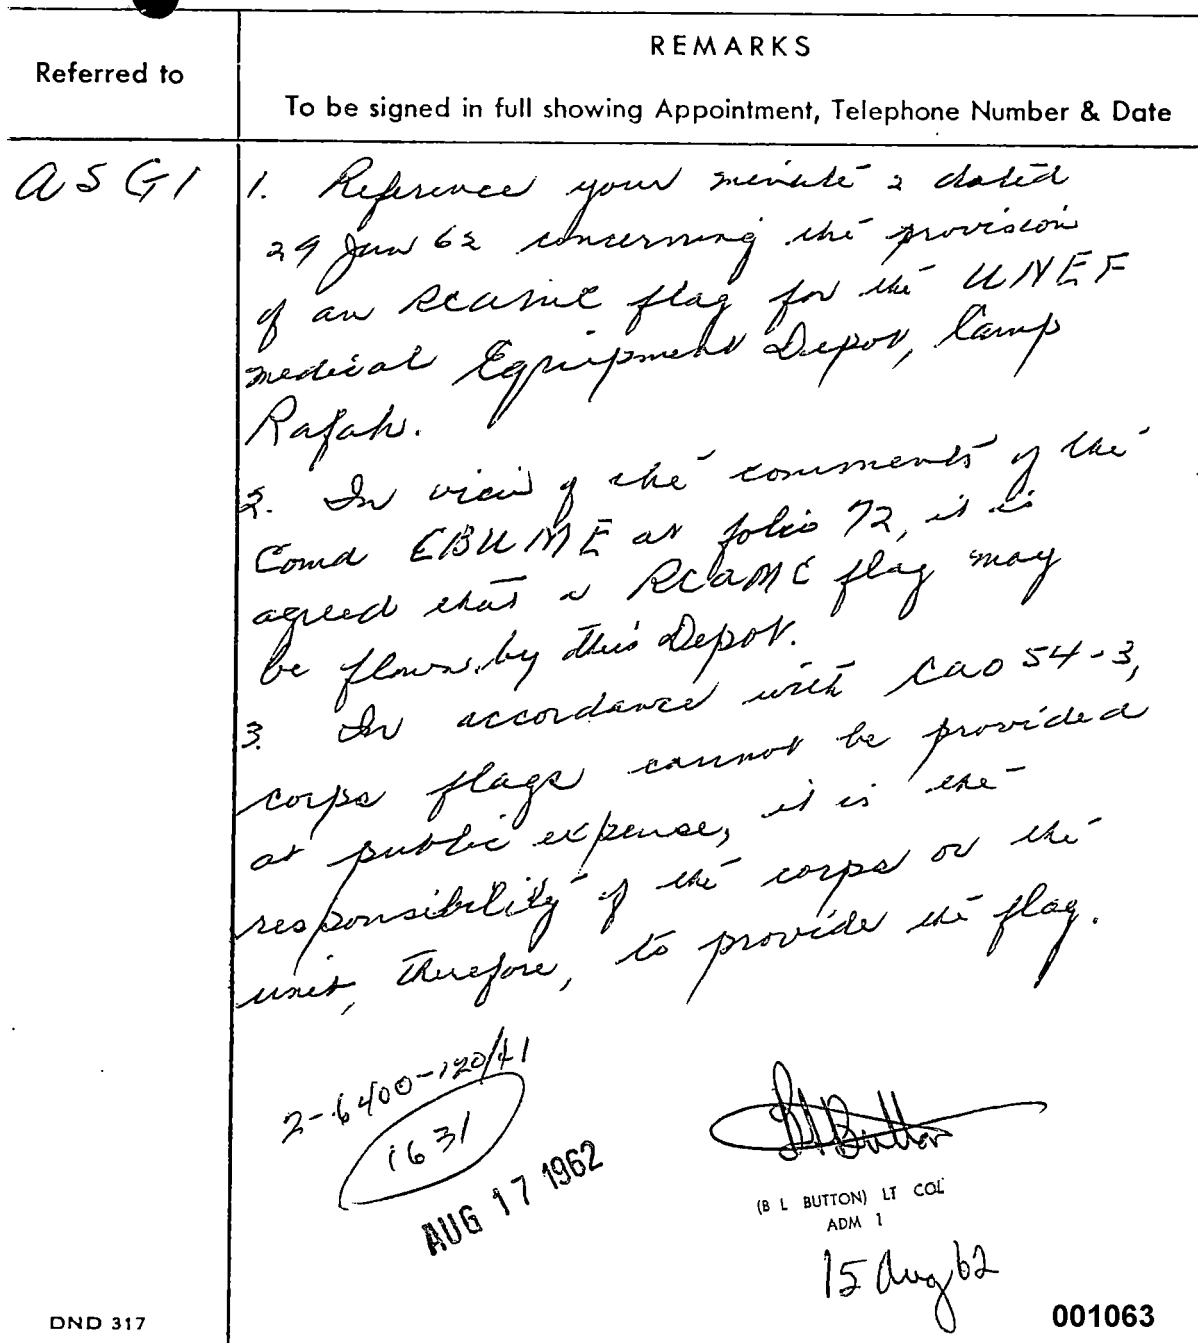 Referred to
REMARKS
To be signed in full showing Appointment, Telephone Number & Date
ASG1
1. Reference your minute 2 dated
29 Jun 62 concerning the provision
of an RCAMC flag for the UNEF
medical Equipment Depot, Camp
Rafah.
2. In view of the comments of the
Comd CBUME at folio 72, it is
agreed that a RCAMC flag may
be flown by this Depot.
3. In accordance with CAO 54-3,
corps flags cannot be provided
at public expense, it is the
responsibility of the corps or the
unit, therefore, to provide the flag.
2-6400-120/41
1631
AUG 17 1962
BL Button
(B L BUTTON) LT COL
ADM 1
15 Aug 62
DND 317
001063